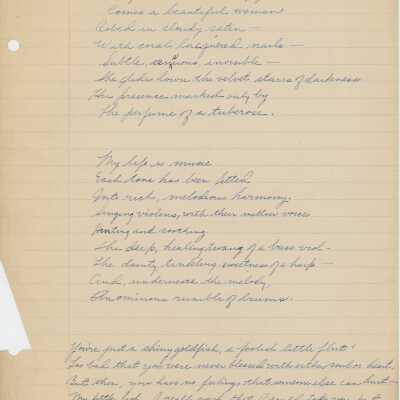 Comes a beautiful woman
Robed in cloudy satin —
With coral lacquered nails —
Subtle, sensuous, invisible —
She glides down the velvet stairs of darkness
Her presence marked only by
The perfume of a tuberose.
My life is music
Each tone has been fitted
Into rich, melodious harmony.
Singing violins, with their mellow voices
and soothing.
The deep, healing twang of a bass viol —
The dainty, tinkling sweetness of a harp —
And, underneath the melody,
An ominous rumble of drums.
You're just a shiny goldfish, a foolish little flirt!
Too bad that you were never blessed with either soul or heart.
But then, you have no feelings that someone else can hurt —
My little fish, I really